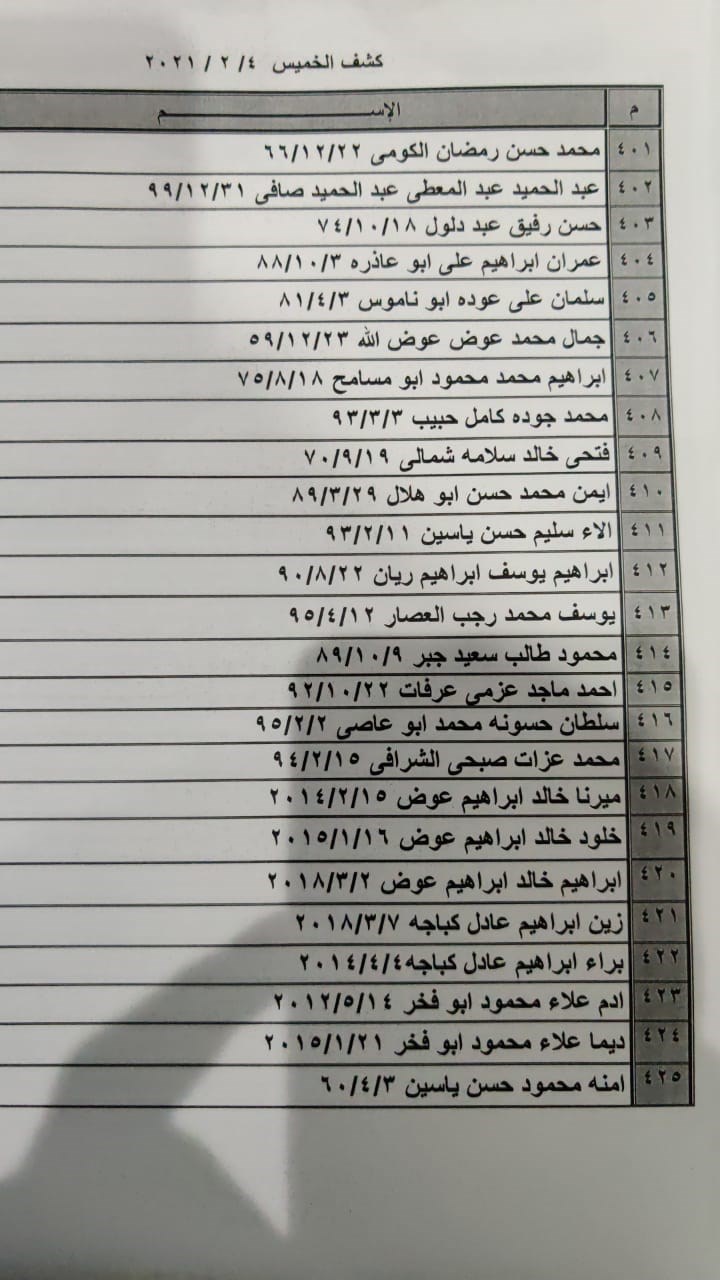 كشف الخميس ٤ / ٢ / ٢٠٢١
م الإســـــــــــــم
٤٠١ محمد حسن رمضان الكومى ٦٦/١٢/٢٢
٤٠٢ عبد الحميد عبد المعطى عبد الحميد صافى ٩٩/١٢/٣١
٤٠٣ حسن رفيق عبد دلول ٧٤/١٠/١٨
٤٠٤ عمران ابراهيم على ابو عاذره ٨٨/١٠/٣
٤٠٥ سلمان على عوده ابو ناموس ٨١/٤/٣
٤٠٦ جمال محمد عوض عوض الله ٥٩/١٢/٢٣
٤٠٧ ابراهيم محمد محمود ابو مسامح ٧٥/٨/١٨
٤٠٨ محمد جوده كامل حبيب ٩٣/٣/٣
٤٠٩ فتحى خالد سلامه شمالى ٧٠/٩/١٩
٤١٠ ايمن محمد حسن ابو هلال ٨٩/٣/٢٩
٤١١ الاء سليم حسن ياسين ٩٣/٢/١١
٤١٢ ابراهيم يوسف ابراهيم ريان ٩٠/٨/٢٢
٤١٣ يوسف محمد رجب العصار ٩٥/٤/١٢
٤١٤ محمود طالب سعيد جبر ٨٩/١٠/٩
٤١٥ احمد ماجد عزمي عرفات ٩٢/١٠/٢٢
٤١٦ سلطان حسونه محمد ابو عاصى ٩٥/٢/٢
٤١٧ محمد عزات صبحى الشرافى ٩٤/٢/١٥
٤١٨ ميرنا خالد ابراهيم عوض ٢٠١٤/٢/١٥
٤١٩ خلود خالد ابراهيم عوض ٢٠١٥/١/١٦
٤٢٠ ابراهيم خالد ابراهيم عوض ٢٠١٨/٣/٢
٤٢١ زين ابراهيم عادل كباجه ٢٠١٨/٣/٧
٤٢٢ براء ابراهيم عادل كباجه٢٠١٤/٤/٤
٤٢٣ ادم علاء محمود ابو فخر ٢٠١٢/٥/١٤
٤٢٤ ديما علاء محمود ابو فخر ٢٠١٥/١/٢١
٤٢٥ امنه محمود حسن ياسين ٦٠/٤/٣